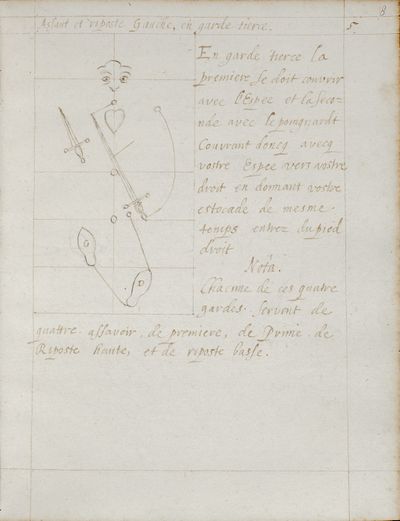 8
Assaut et riposte Gauche, en garde tierce. 5
En garde tierce la
premiere se doit couvrir
avec l'Espee et la seco-
nde avec le poingnardt
Couvrant doncq avecq
vostre Espee vers vostre
droit en donnant vostre
estocade de mesme
temps entrez du pied
droit
Nota.
Chacune de ces quatre
gardes servent de
quattre assavoir de premiere, de Prime de
Riposte haute, et de riposte basse.